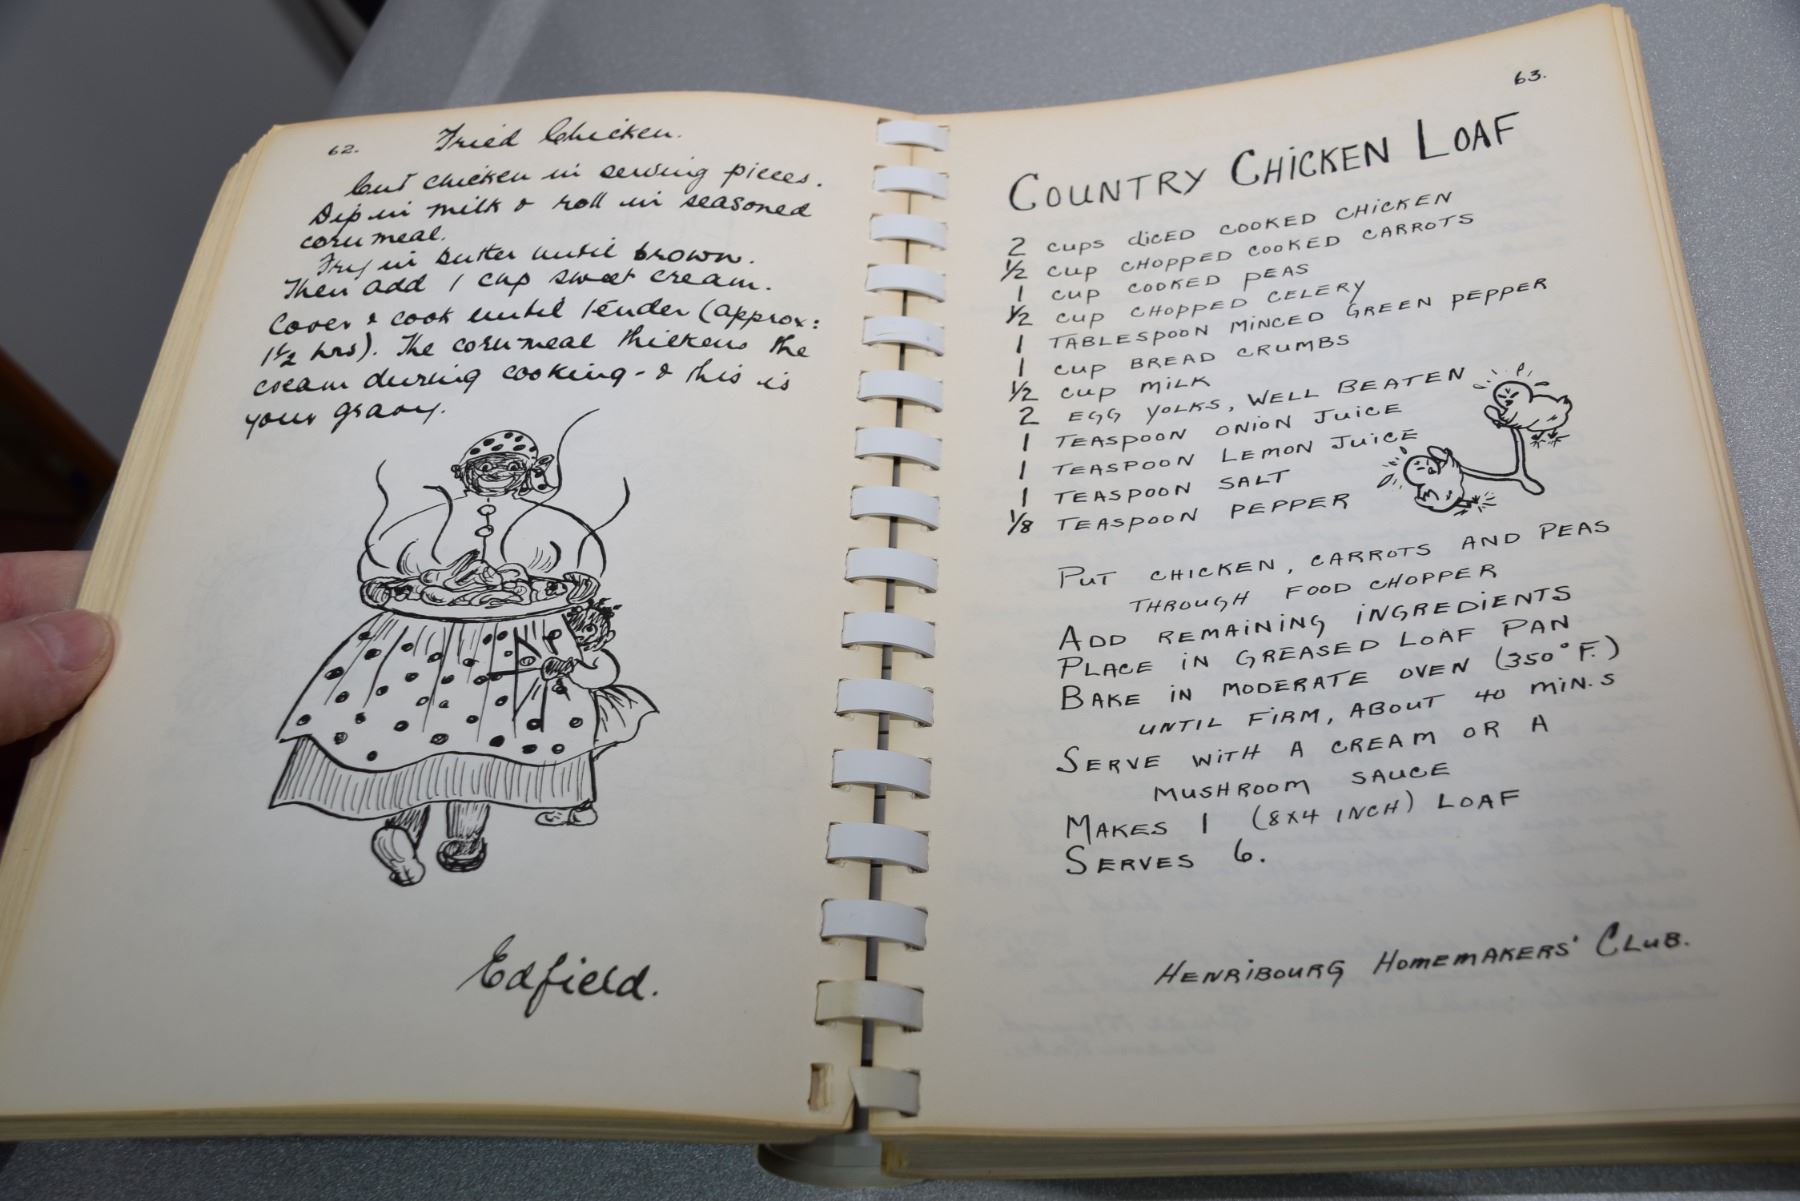 62.
Fried Chicken.
Cut chicken in serving pieces.
Dip in milk & roll in seasoned
cornmeal.
Fry in butter until brown.
Then add 1 cup sweet cream.
Cover & cook until tender (approx:
1½ hrs). The cornmeal thickens the
cream during cooking - & this is
your gravy.
Edfield.
63.
COUNTRY CHICKEN LOAF
2 CUPS DICED COOKED CHICKEN
½ CUP CHOPPED COOKED CARROTS
1 CUP COOKED PEAS
½ CUP CHOPPED CELERY
1 TABLESPOON MINCED GREEN PEPPER
1 CUP BREAD CRUMBS
½ CUP MILK
2 EGG YOLKS, WELL BEATEN
1 TEASPOON ONION JUICE
1 TEASPOON LEMON JUICE
1 TEASPOON SALT
⅛ TEASPOON PEPPER
PUT CHICKEN, CARROTS AND PEAS
THROUGH FOOD CHOPPER
ADD REMAINING INGREDIENTS
PLACE IN GREASED LOAF PAN
BAKE IN MODERATE OVEN (350° F.)
UNTIL FIRM, ABOUT 40 MIN.S
SERVE WITH A CREAM OR A
MUSHROOM SAUCE
MAKES 1 (8X4 INCH) LOAF
SERVES 6.
HENRIBOURG HOMEMAKERS' CLUB.